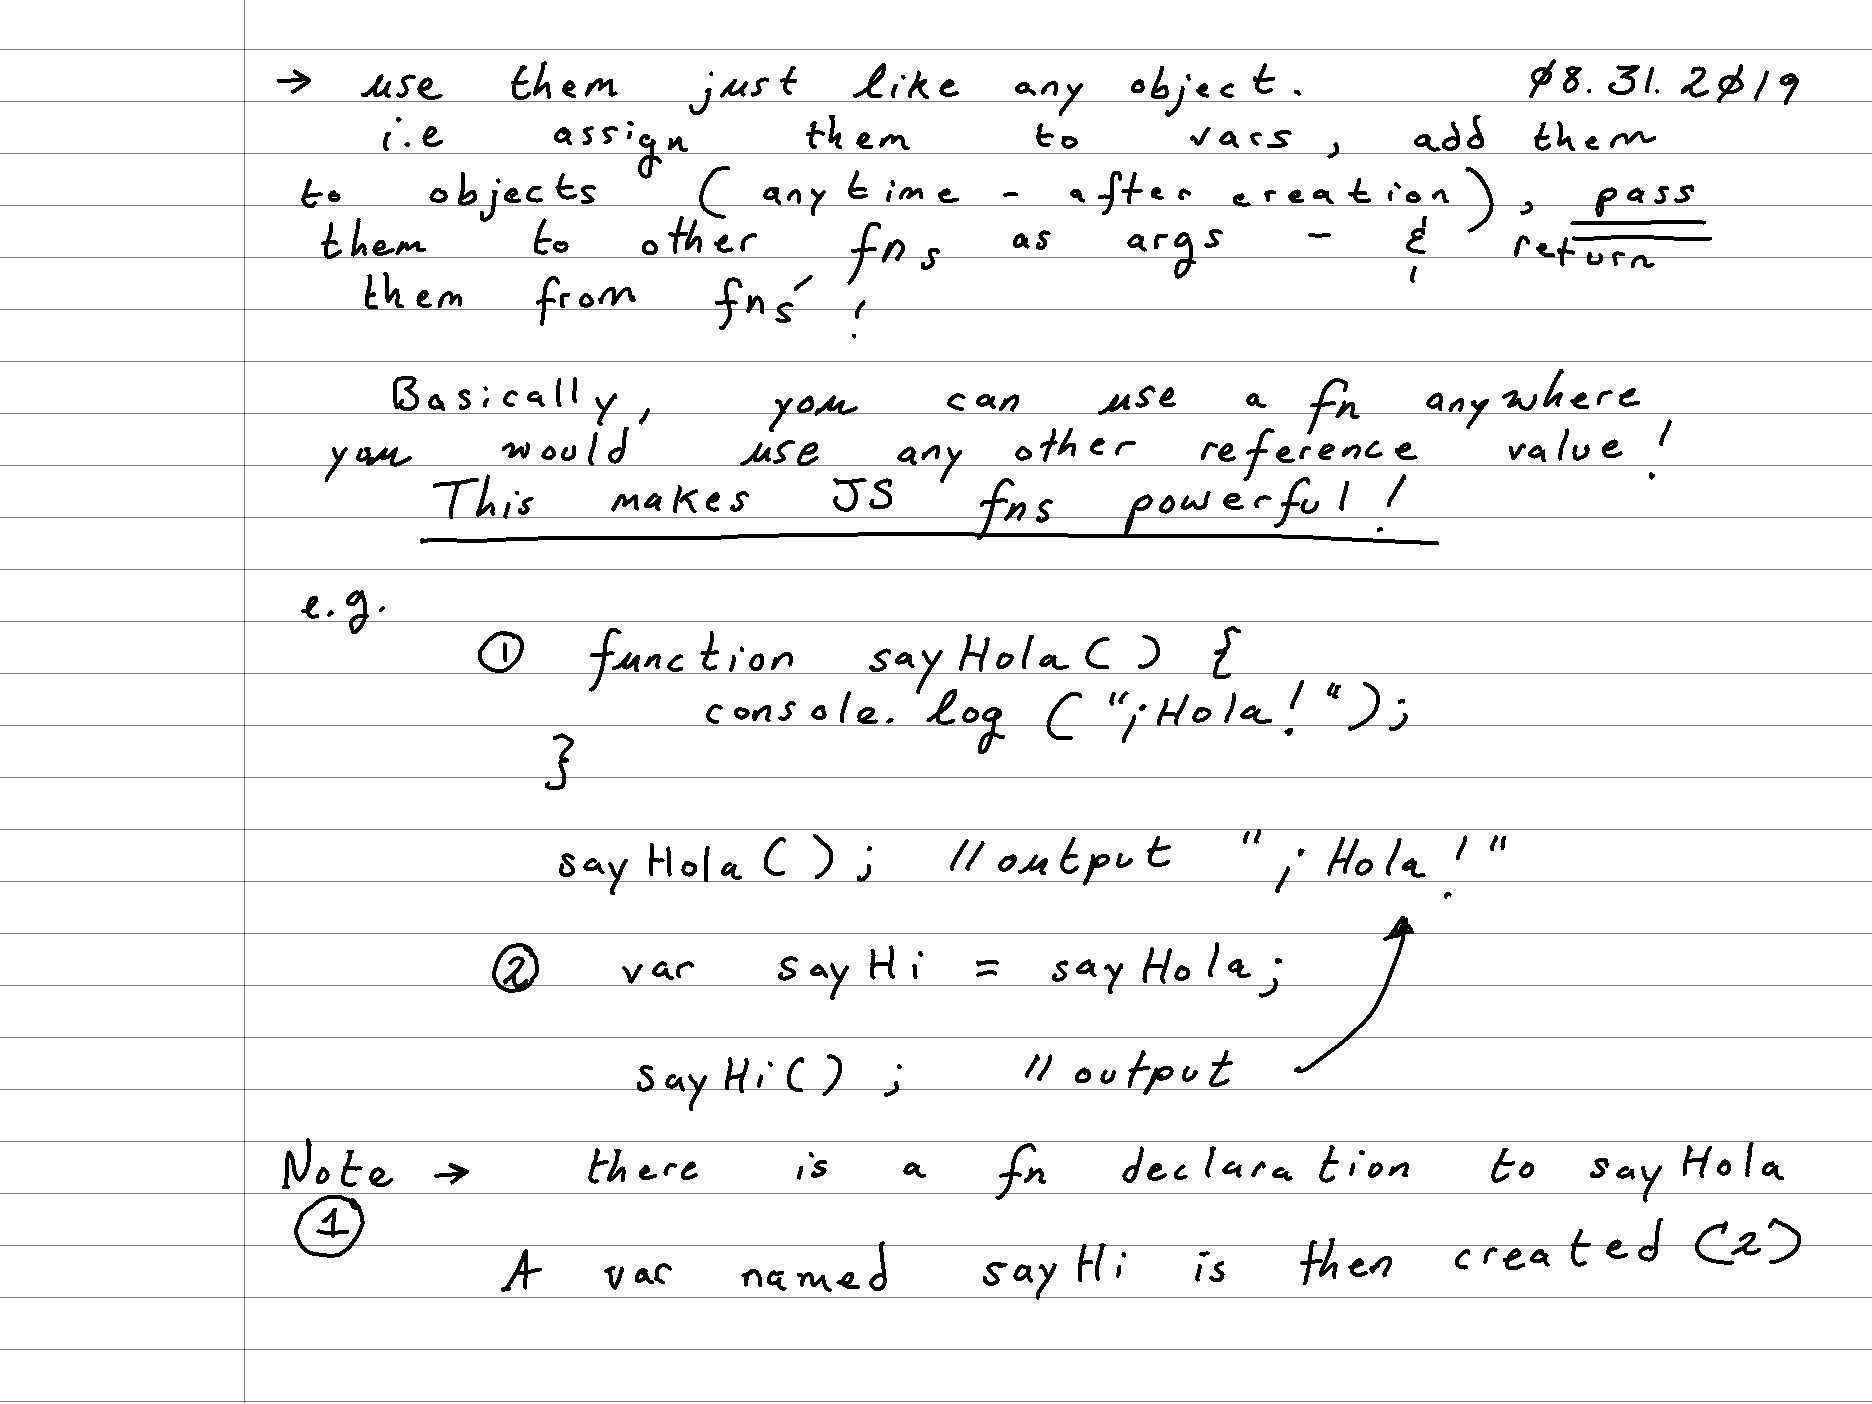 → use them just like any object. 08.31.2019
i.e assign them to vars, add them
to objects (anytime - after creation), pass
them to other fns as args - & return
them from fns' !
Basically, you can use a fn anywhere
you would use any other reference value!
This makes JS fns powerful!
e.g.
① function sayHola() {
console.log ("¡Hola!");
}
sayHola(); //output "¡Hola!"
② var sayHi = sayHola;
sayHi(); //output
Note → there is a fn declaration to sayHola
①
A var named sayHi is then created (2)